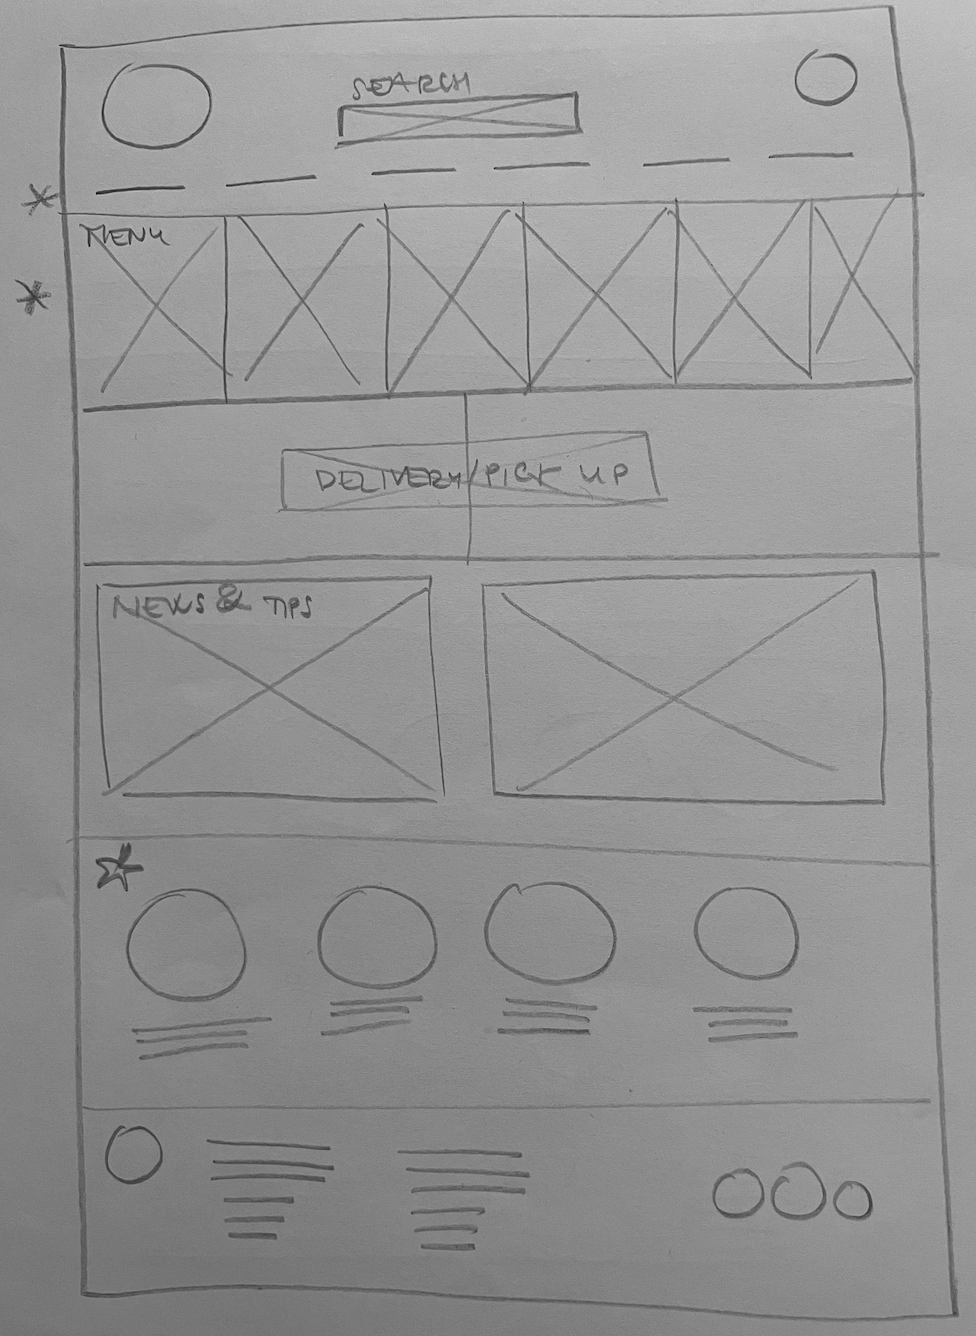 SEARCH
MENU
DELIVERY/PICK UP
NEWS & TIPS